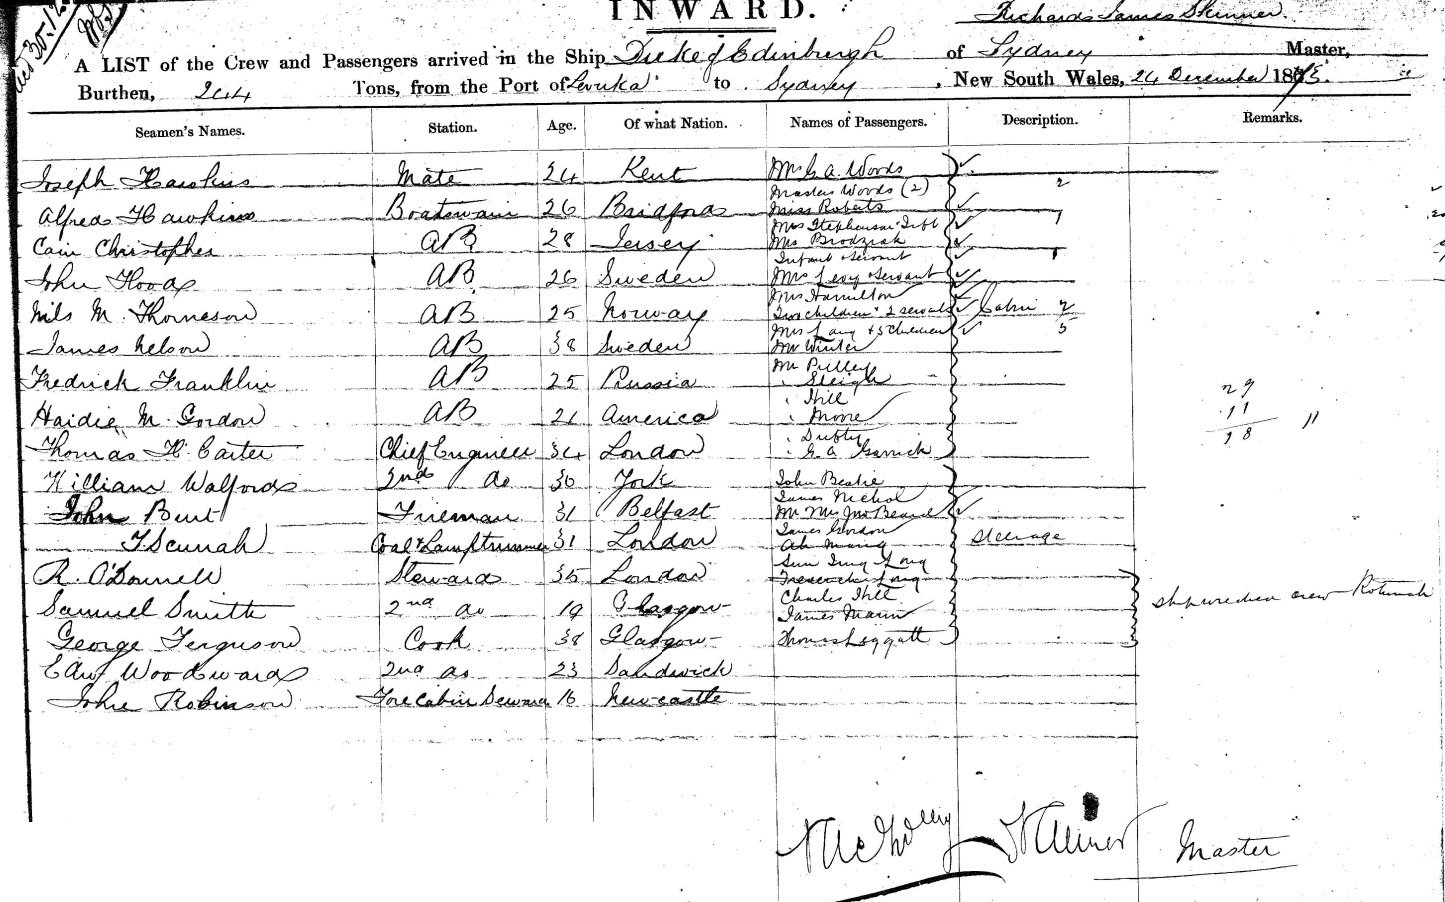 INWARD.
Richards James Skinner.
A LIST of the Crew and Passengers arrived in the Ship Duke of Edinburgh of Sydney Master,
Burthen, 244 Tons, from the Port of Levuka to Sydney, New South Wales, 24 December 1875.
Seamen's Names. Station. Age. Of what Nation. Names of Passengers. Description. Remarks.
Joseph Hawkins Mate 24 Kent Mrs G. A. Woods
Masters Woods (2) 2
Alfred Hawkins Boatswain 26 Bridford Miss Roberts
Mrs Stephenson Inft 1
Cain Christopher AB 28 Jersey Mrs Brodziak
Infant & Servant 1
John Hood AB 26 Sweden Mrs Levy & Servant
Mrs Hamilton
Nils M. Thomeson AB 25 Norway Two children & 2 servants Cabin 2
Mrs Lang & 5 Children 5
James Nelson AB 38 Sweden Mr Winter
Mr Pulley
Fredrick Franklin AB 25 Russia " Sleigh
" Hill 29
Haidie M. Gordon AB 21 America " Moore 11 11
" Dufty 18
Thomas H. Carter Chief Engineer 34 London " G. A. Garrick
William Walford 2nd do 30 York John Beatie
James Nichol
John Bent Fireman 31 Belfast Mr Mrs Jno Beard
James Gordon
F Scurrah Coal & Lamptrimmer 31 London Ah Maing Steerage
Sun Ting Long
R. O'Donnell Steward 35 London
Charles Hill
Samuel Smith 2nd do 19 Glasgow James Mann shipwrecked crew Rotumah
George Ferguson Cook 38 Glasgow Thomas Leggatt
Edw Woodward 2nd do 23 Sandwich
John Robinson Fore Cabin Steward 16 Newcastle
Master